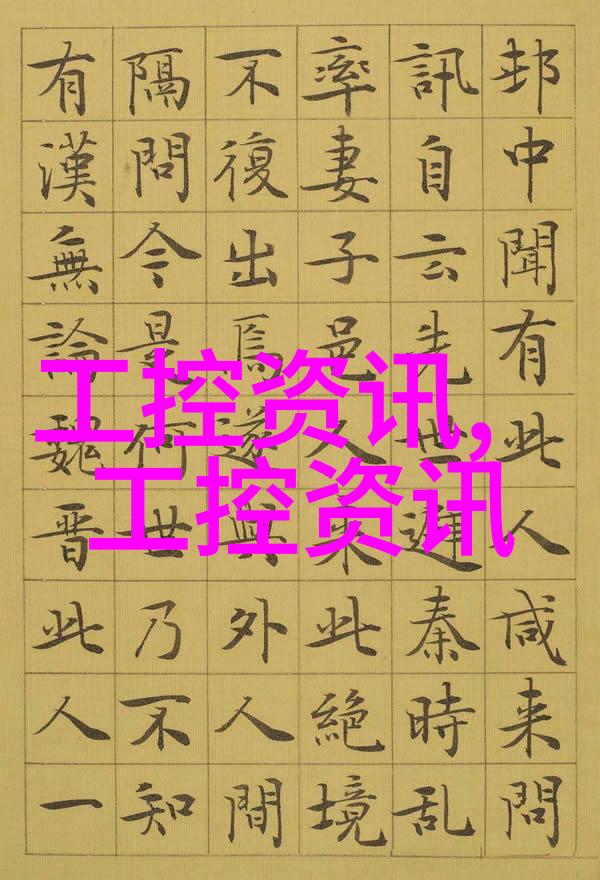 邨中聞有此人咸来問
訊自云先世避秦時乱
率妻子邑人来此絶境
不復出焉遂與外人間
隔問今是何世乃不知
有漢無論魏晋此人一
工控资讯,
工控资讯